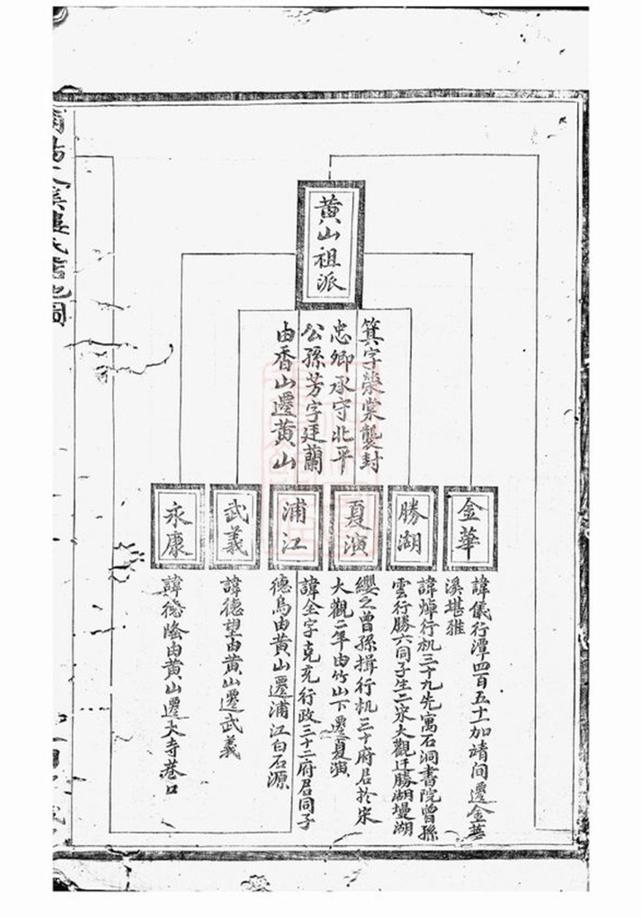 黄山祖派
箕字榮棠襲封
忠卿承守北平
公孫芳字廷蘭
由香山遷黄山
金華
諱儀行潭四百五十加靖间遷金華
溪堪雅
勝湖
諱焯行机三十九先寓石洞書院曾孫
雲行勝六同子生二宋大觀迁勝湖墁湖
夏演
纓之曾孫揖行机三十府君於宋
大觀二年由竹山下遷夏演
浦江
諱全字克充行政三十二府君同子
德鳥由黄山遷浦江白石源
武義
諱德望由黄山遷武義
永康
諱德隆由黄山遷大寺巷口